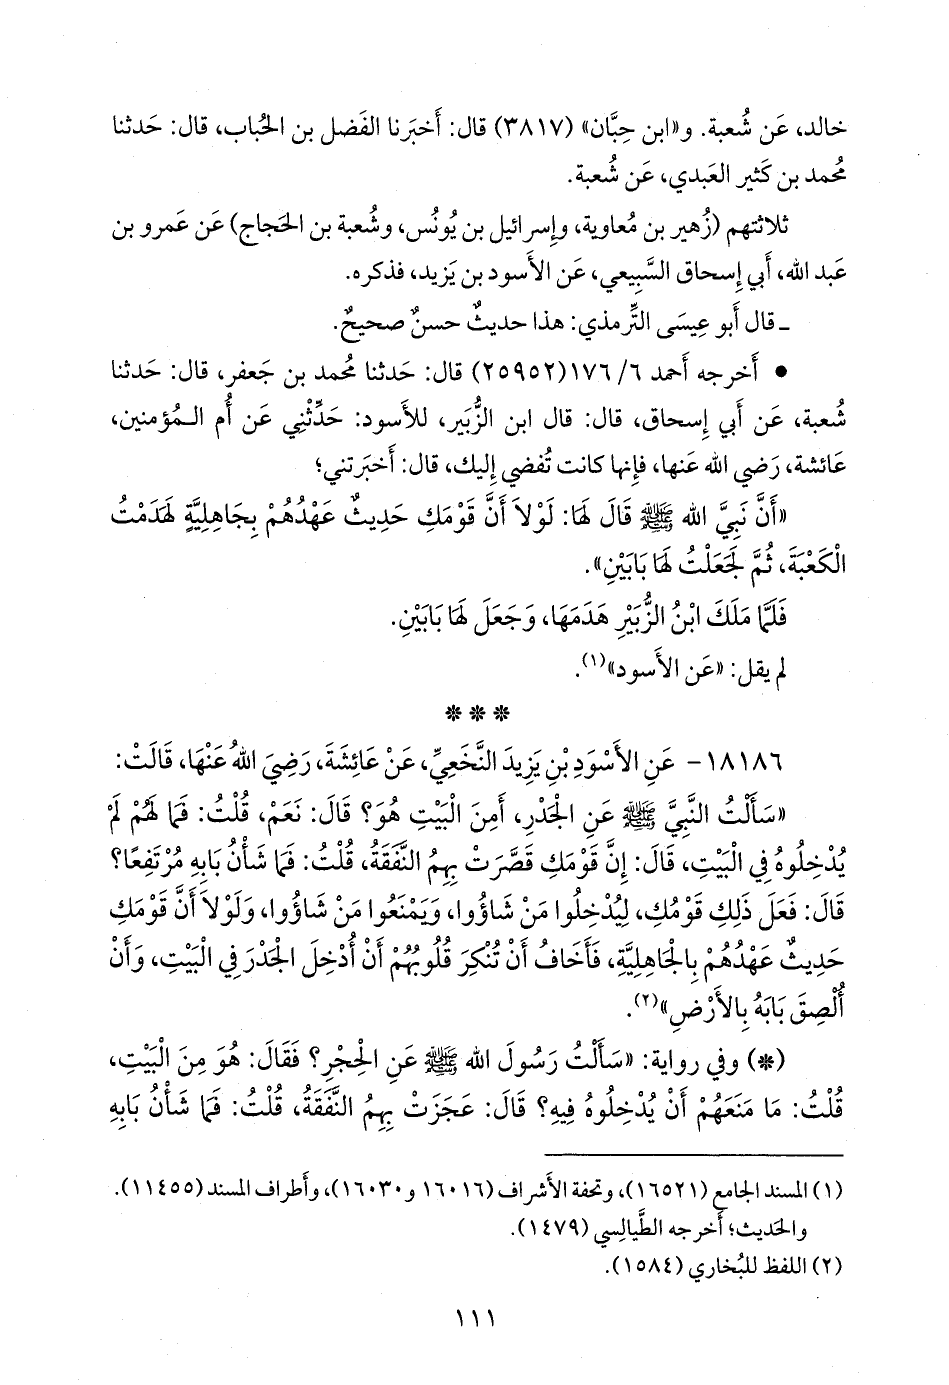 خالد، عَن شُعبة. و«ابن حِبَّان» (٣٨١٧) قال: أَخبَرنا الفَضل بن الحُباب، قال: حَدثنا
مُحمد بن كَثير العَبدي، عَن شُعبة.
ثلاثتهم (زُهير بن مُعاوية، وإِسرائيل بن يُونُس، وشُعبة بن الحَجاج) عَن عَمرو بن
عَبد الله، أَبي إِسحاق السَّبِيعي، عَن الأَسود بن يَزيد، فذكره.
ـ قال أَبو عِيسَى التِّرمذي: هذا حديثٌ حسنٌ صحيحٌ.
• أَخرجه أَحمد ٦/ ١٧٦(٢٥٩٥٢) قال: حَدثنا مُحمد بن جَعفر، قال: حَدثنا
شُعبة، عَن أَبي إِسحاق، قال: قال ابن الزُّبَير، للأَسود: حَدِّثْنِي عَن أُم الـمُؤمنين،
عَائشة، رَضي الله عَنها، فإِنها كانت تُفضي إِليك، قال: أَخبَرتني؛
«أَنَّ نَبِيَّ الله ﷺ قَالَ لَهَا: لَوْلاَ أَنَّ قَوْمَكِ حَدِيثٌ عَهْدُهُمْ بِجَاهِلِيَّةٍ لَهَدَمْتُ
الْكَعْبَةَ، ثُمَّ لَجَعَلْتُ لَهَا بَابَيْنِ».
فَلَمَّا مَلَكَ ابْنُ الزُّبَيْرِ هَدَمَهَا، وَجَعَلَ لَهَا بَابَيْنِ.
لم يقل: «عَن الأَسود»(١).
* * *
١٨١٨٦- عَنِ الأَسْوَدِ بْنِ يَزِيدَ النَّخَعِيِّ، عَنْ عَائِشَةَ، رَضِيَ اللهُ عَنْهَا، قَالَتْ:
«سَأَلْتُ النَّبِيَّ ﷺ عَنِ الجَدْرِ، أَمِنَ الْبَيْتِ هُوَ؟ قَالَ: نَعَمْ، قُلْتُ: فَمَا لَهُمْ لَمْ
يُدْخِلُوهُ فِي الْبَيْتِ، قَالَ: إِنَّ قَوْمَكِ قَصَّرَتْ بِهِمُ النَّفَقَةُ، قُلْتُ: فَمَا شَأْنُ بَابِهِ مُرْتَفِعًا؟
قَالَ: فَعَلَ ذَلِكِ قَوْمُكِ، لِيُدْخِلُوا مَنْ شَاؤُوا، وَيَمْنَعُوا مَنْ شَاؤُوا، وَلَوْلاَ أَنَّ قَوْمَكِ
حَدِيثٌ عَهْدُهُمْ بِالجَاهِلِيَّةِ، فَأَخَافُ أَنْ تُنْكِرَ قُلُوبُهُمْ أَنْ أُدْخِلَ الجَدْرَ فِي الْبَيْتِ، وَأَنْ
أُلْصِقَ بَابَهُ بِالأَرْضِ»(٢).
(*) وفي رواية: «سَأَلْتُ رَسُولَ الله ﷺ عَنِ الْحِجْرِ؟ فَقَالَ: هُوَ مِنَ الْبَيْتِ،
قُلْتُ: مَا مَنَعَهُمْ أَنْ يُدْخِلُوهُ فِيهِ؟ قَالَ: عَجَزَتْ بِهِمُ النَّفَقَةُ، قُلْتُ: فَمَا شَأْنُ بَابِهِ
(١) المسند الجامع (١٦٥٢١)، وتحفة الأشراف (١٦٠١٦ و١٦٠٣٠)، وأطراف المسند (١١٤٥٥).
والحَديث؛ أَخرجه الطَّيالِسي (١٤٧٩).
(٢) اللفظ للبُخاري (١٥٨٤).
١١١